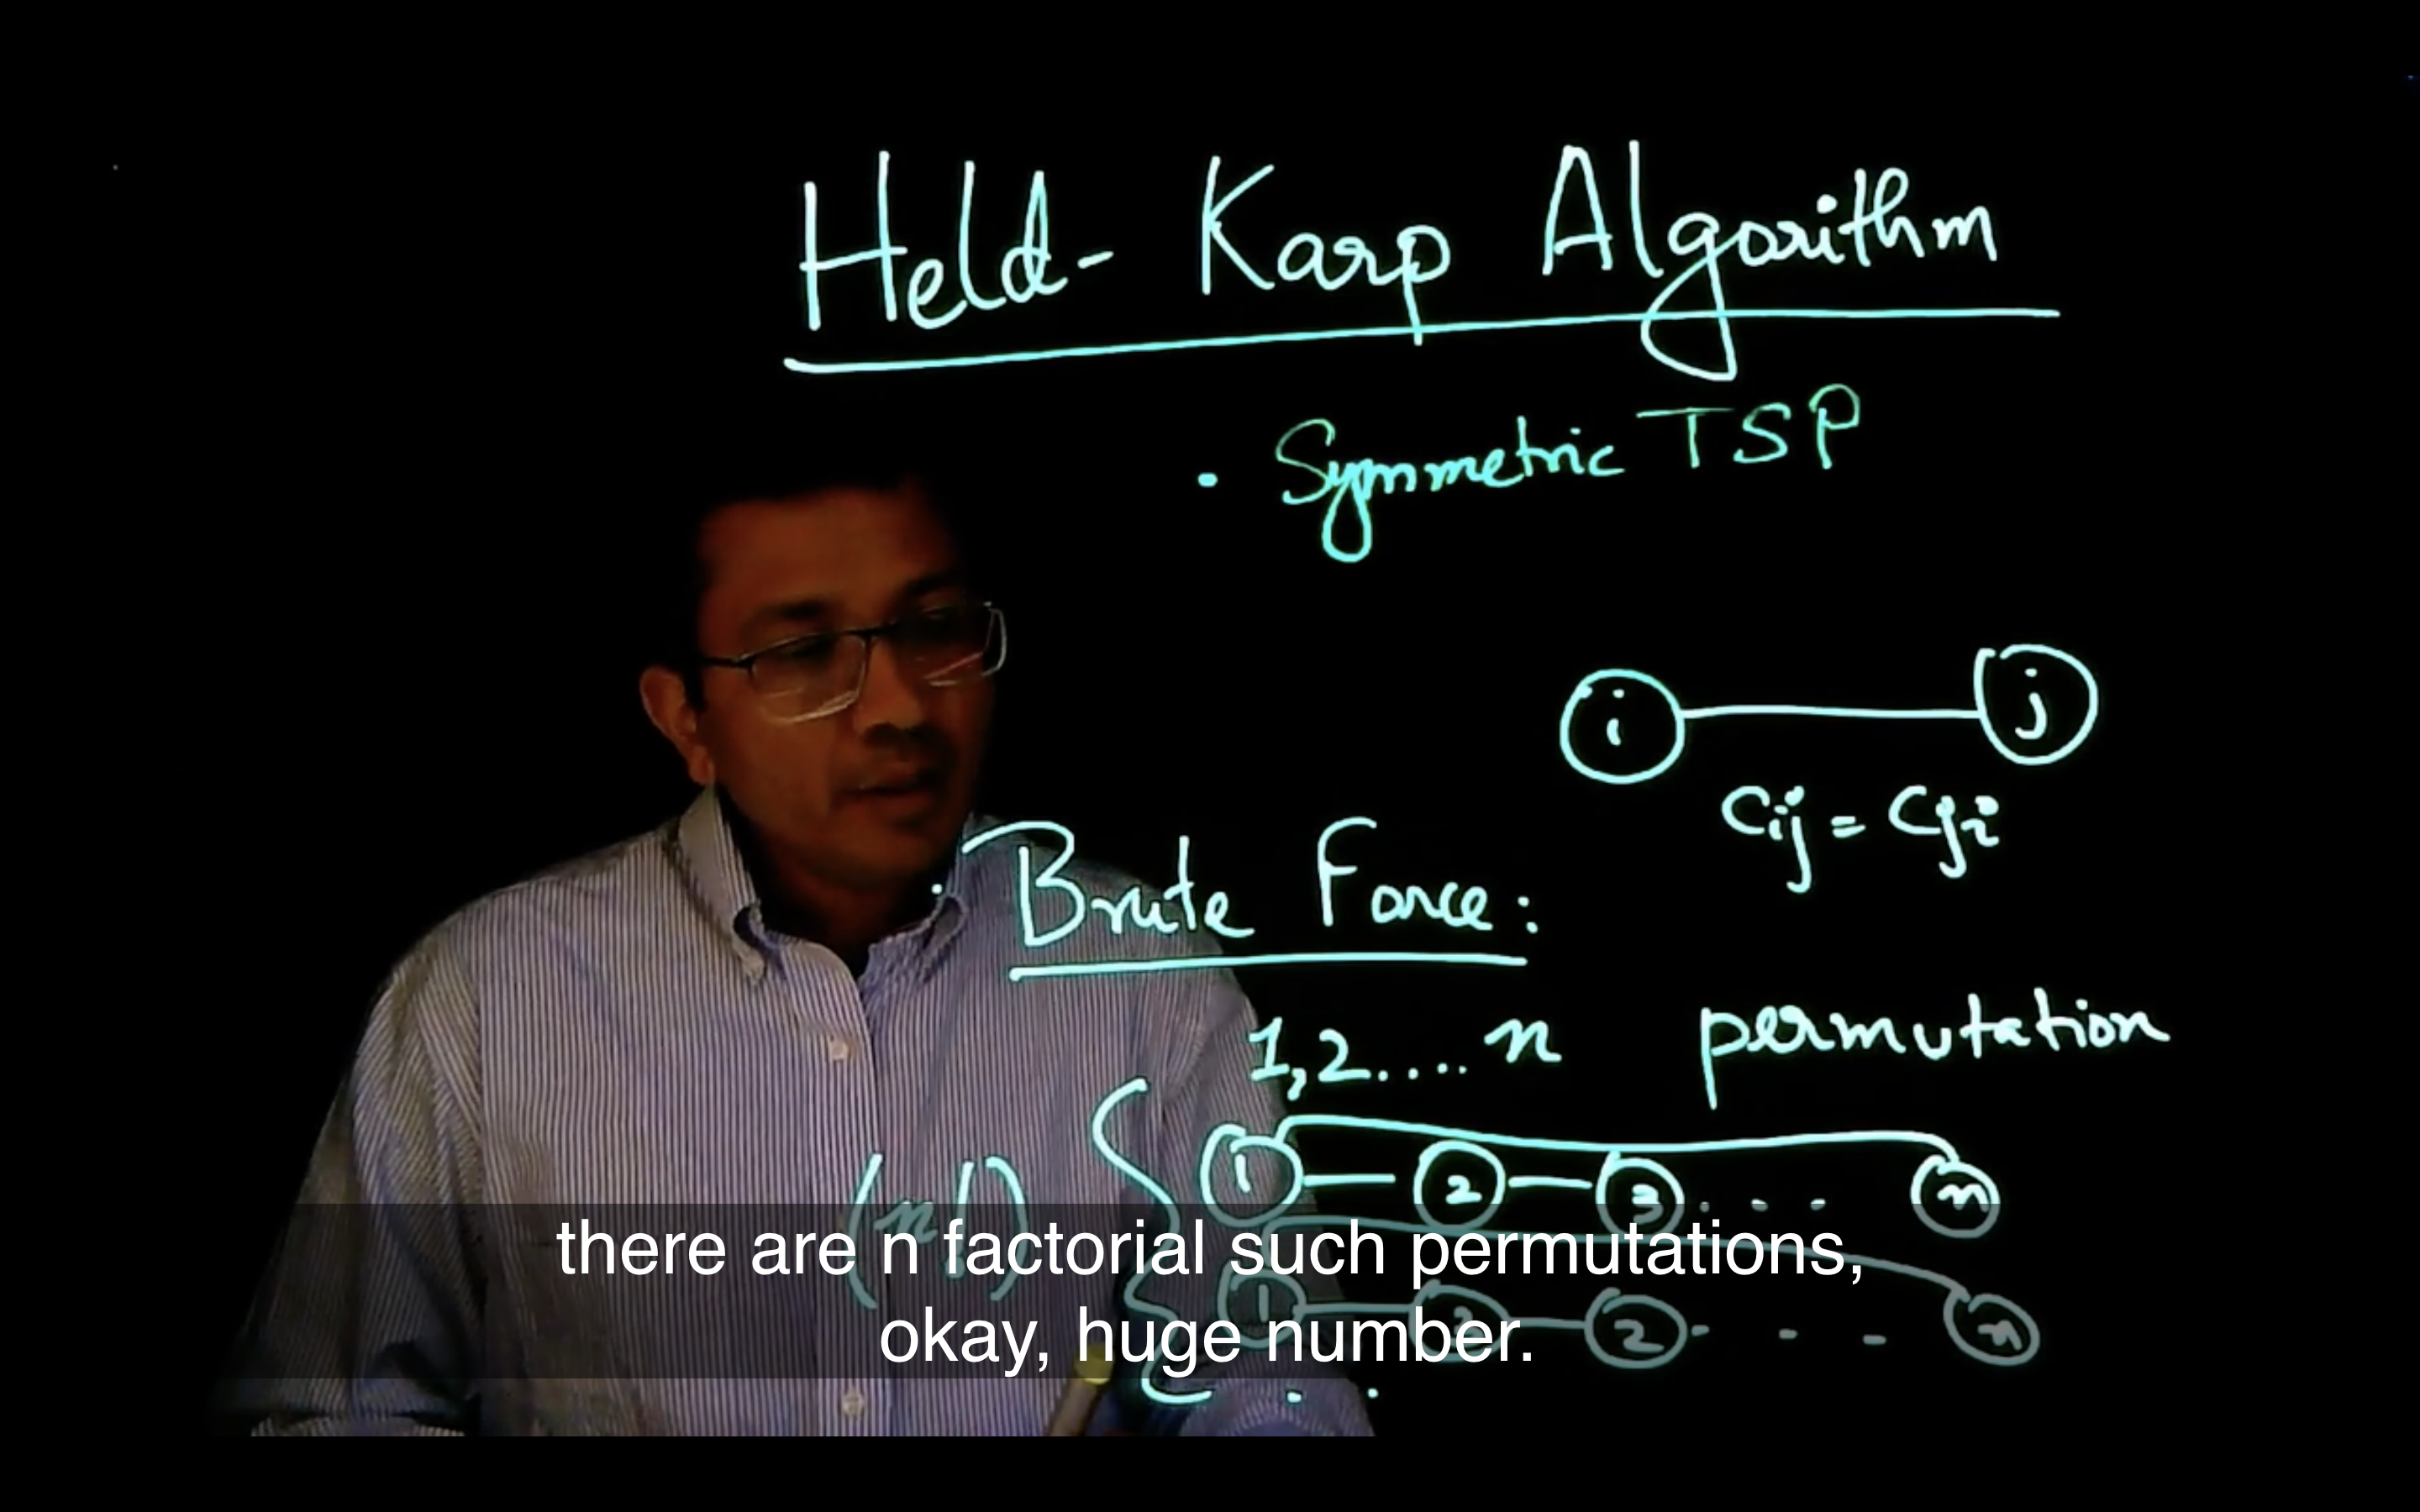 Held-Karp Algorithm
• Symmetric TSP
i j
Cij = Cji
• Brute Force:
1,2.... n permutation
(n!)
1 2 3 . . . n
1 3 2 . . . n
there are n factorial such permutations,
okay, huge number.